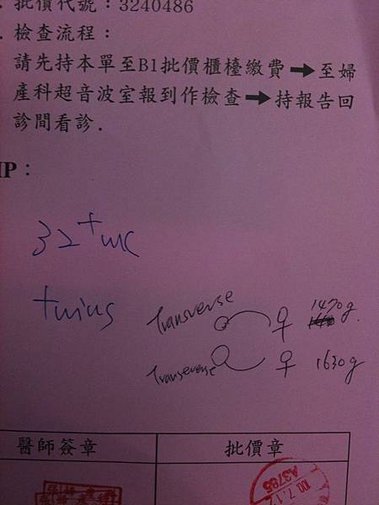 . 批價代號：3240486
. 檢查流程：
請先持本單至B1批價櫃檯繳費➡至婦
產科超音波室報到作檢查➡持報告回
診間看診.
IP：
32⁺ wk
twins
Transverse ♀ 1470g.
Transverse ♀ 1630g
醫師簽章 批價章
A3785